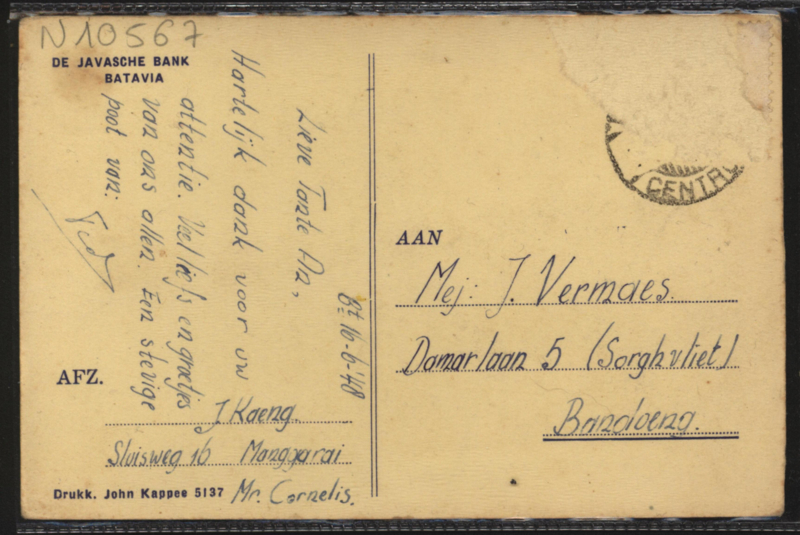 N10567
DE JAVASCHE BANK
BATAVIA
Bt. 16-6-'48
Lieve Tante An,
Hartelijk dank voor uw
attentie. Veel liefs en groetjes
van ons allen. Een stevige
poot van:
Ted
AFZ.
J. Kaeng.
Sluisweg 16 Manggarai
Mr. Cornelis.
Drukk. John Kappee 5137
CENTR
AAN
Mej: J. Vermaes.
Damarlaan 5 (Sorghvliet)
Bandoeng.